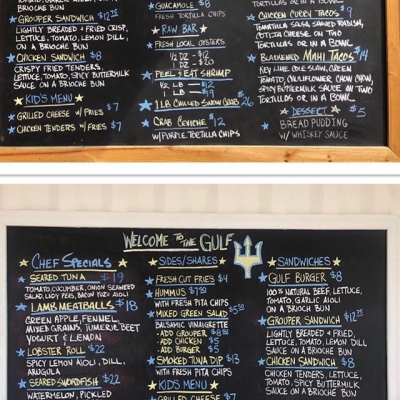 ON A BRIOCHE BUN
GROUPER SANDWICH $12.75
LIGHTLY BREADED + FRIED CRISP,
LETTUCE, TOMATO, LEMON DILL,
ON A BRIOCHE BUN
CHICKEN SANDWICH $8
CRISPY FRIED TENDERS,
LETTUCE, TOMATO, SPICY BUTTERMILK
SAUCE ON A BRIOCHE BUN
KID'S MENU
GRILLED CHEESE W/ FRIES $7
CHICKEN TENDERS W/ FRIES $7
GUACAMOLE $8
FRESH TORTILLA CHIPS
RAW BAR
FRESH LOCAL OYSTERS
1/2 DZ - $12
DZ - $20
PEEL & EAT SHRIMP
1/2 LB - $12
1 LB - $19
1 LB CHILLED SNOW CRABS $26
CRAB CEVICHE $12
W/ PURPLE TORTILLA CHIPS
TORTILLAS OR IN A BOWL
CHICKEN CURRY TACOS $9
SALSA, SHAVED RADISH,
COTIJA CHEESE, ON TWO
TORTILLAS OR IN A BOWL
BLACKENED MAHI TACOS $14
KEY LIME COLE SLAW, GREEN
TOMATO, CAULIFLOWER CHOW CHOW,
SPICY BUTTERMILK SAUCE ON TWO
TORTILLAS OR IN A BOWL
DESSERT $5
BREAD PUDDING
W/ WHISKEY SAUCE
WELCOME TO THE GULF
CHEF SPECIALS
SEARED TUNA $19
TOMATO, CUCUMBER, ONION, SEAWEED
SALAD, LADY PEAS, BACON YUZO AIOLI
LAMB MEATBALLS $18
GREEN APPLE, FENNEL,
MIXED GRAINS, TUMERIC, BEET
YOGURT & LEMON
LOBSTER ROLL $22
SPICY LEMON AIOLI, DILL,
ARUGULA
SEARED SWORDFISH $22
WATERMELON, PICKLED
SIDES/SHARES
FRESH CUT FRIES $4
HUMMUS $7.50
WITH FRESH PITA CHIPS
MIXED GREEN SALAD $5.50
BALSAMIC VINAIGRETTE
- ADD GROUPER $8
- ADD CHICKEN $5
- ADD BURGER $5
SMOKED TUNA DIP $13
WITH FRESH PITA CHIPS
KIDS MENU
GRILLED CHEESE $7
SANDWICHES
GULF BURGER $8
100% NATURAL BEEF, LETTUCE,
TOMATO, GARLIC AIOLI
ON A BRIOCH BUN
GROUPER SANDWICH $12.75
LIGHTLY BREADED & FRIED,
LETTUCE, TOMATO, LEMON DILL
SAUCE ON A BRIOCHE BUN
CHICKEN SANDWICH $8
CHICKEN TENDERS, LETTUCE,
TOMATO, SPICY BUTTERMILK
SAUCE ON A BRIOCHE BUN